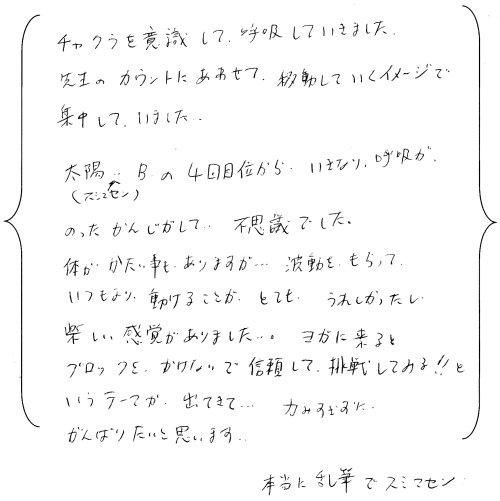 チャクラを意識して、呼吸していきました、
先生のカウントにあわせて、移動していくイメージで
集中して、いました..
太陽.. B の 4回目位から. いきなり、呼吸が、
(スミマセン)
のったかんじがして.. 不思議でした。
体が かたい事も、ありますが... 波動を、もらって、
いつもより、動けることが、とても、うれしかったし
楽しい感覚がありました...。 ヨガに来ると
ブロックを、かけないで 信頼して、挑戦してみる!!と
いうテーマが、出てきて... 力みすぎずに、
がんばりたいと思います..
本当に 乱筆で スミマセン